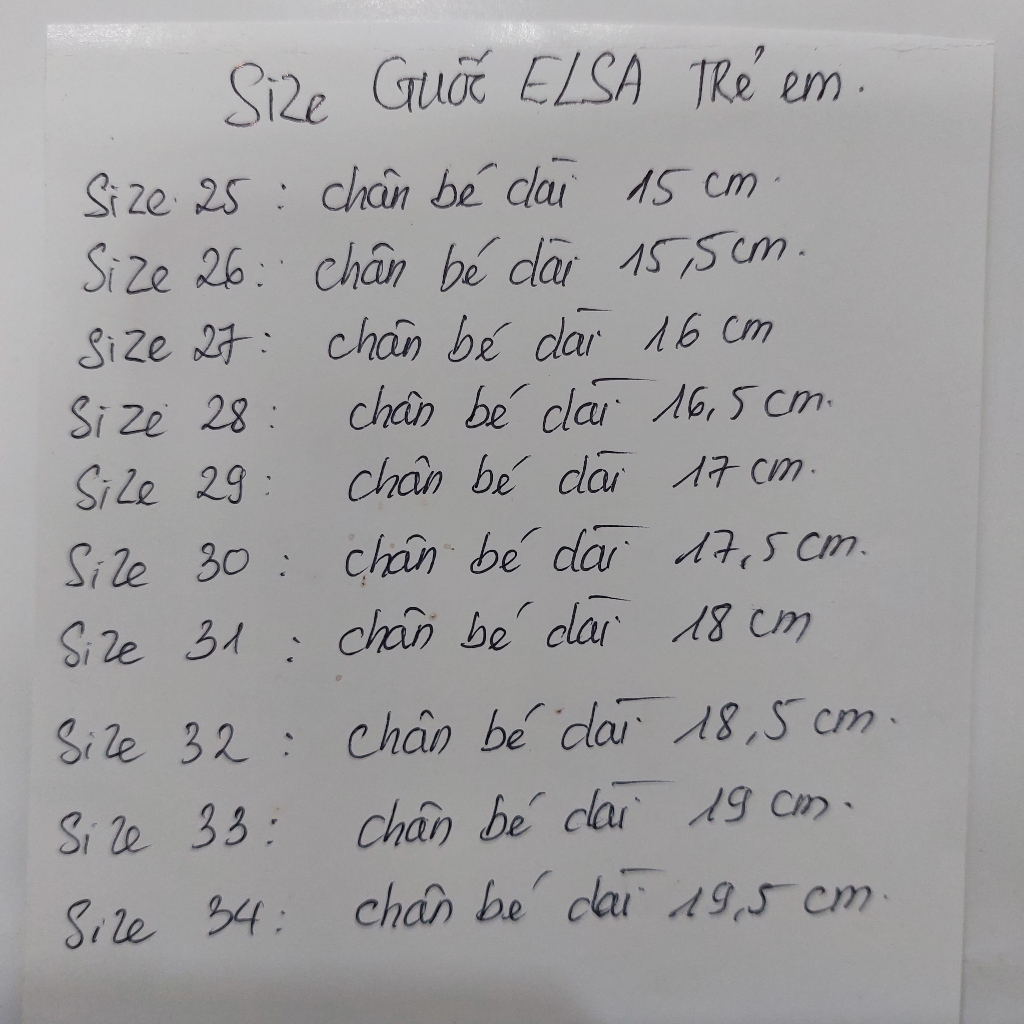 Size Guốc ELSA TRẻ em.
Size 25 : chân bé dài 15 cm.
Size 26 : chân bé dài 15,5 cm.
Size 27 : chân bé dài 16 cm
Size 28 : chân bé dài 16,5 cm.
Size 29 : chân bé dài 17 cm.
Size 30 : chân bé dài 17,5 cm.
Size 31 : chân bé dài 18 cm
Size 32 : chân bé dài 18,5 cm.
Size 33 : chân bé dài 19 cm.
Size 34 : chân bé dài 19,5 cm.